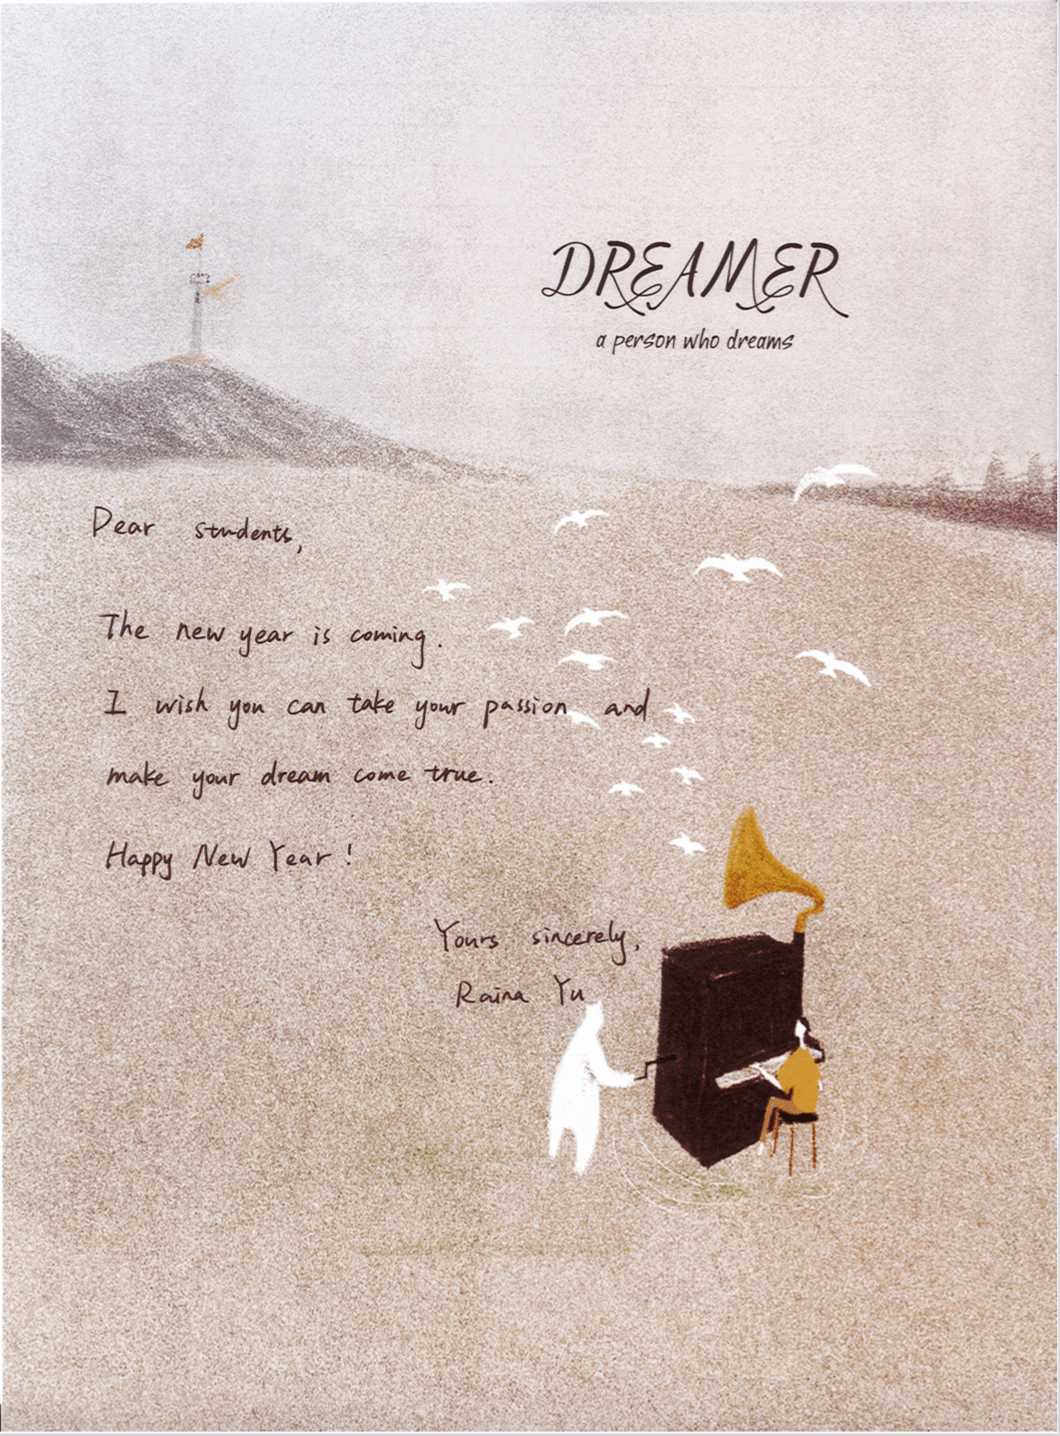 DREAMER
a person who dreams
Dear students,
The new year is coming.
I wish you can take your passion and
make your dream come true.
Happy New Year!
Yours sincerely,
Raina Yu